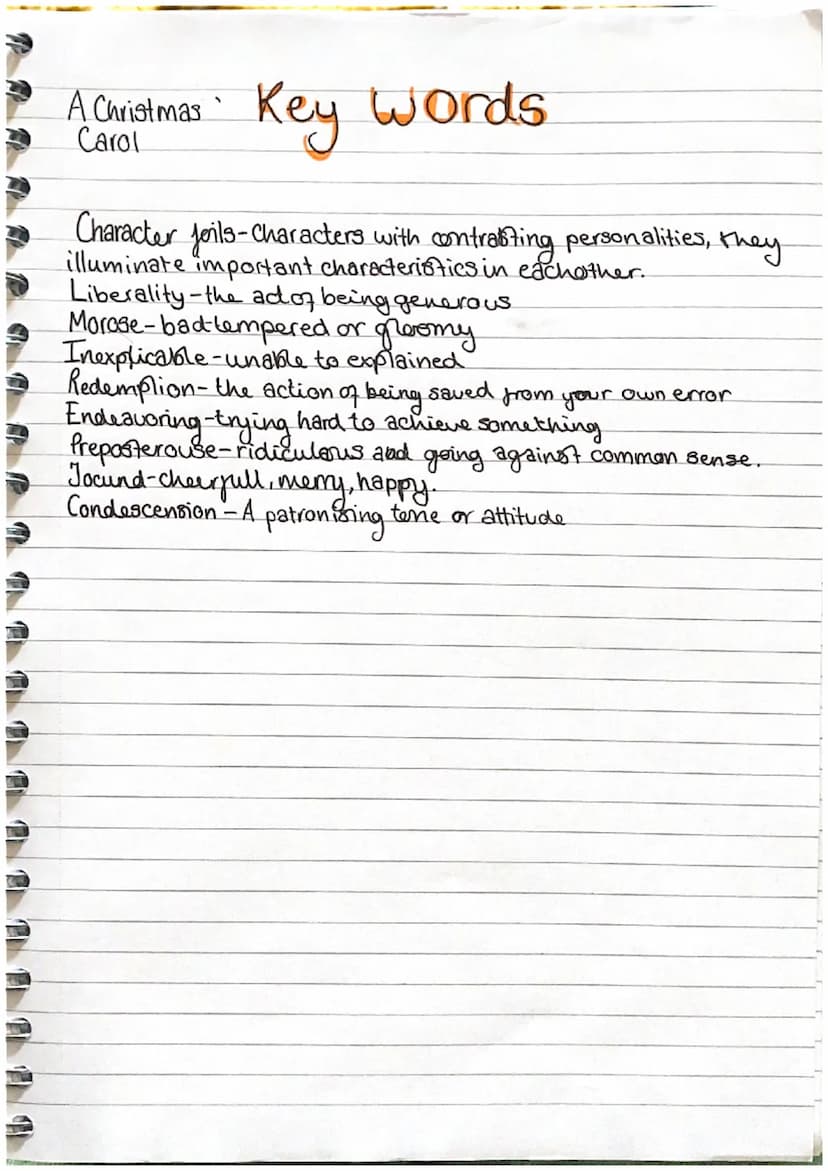 A Christmas Key Words
Carol
Character foils-characters with contrasting personalities, they
illuminate important characteristics in eachother.
Liberality-the act of being generous
Morose-bad-tempered or gloomy
Inexplicable-unable to explained
Redemption-the action of being saved from your own error
Endeavoring-trying hard to achieve something
Preposterouse-ridiculous and going against common sense.
Jocund-cheerfull, merry, happy.
Condescension-A patronising tone or attitude